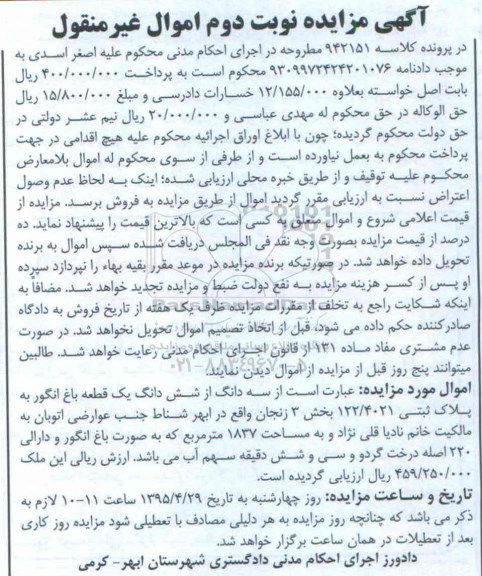 آگهی مزایده نوبت دوم اموال غیرمنقول
در پرونده کلاسه ۹۴۲۱۵۱ مطروحه در اجرای احکام مدنی محکوم علیه اصغر اسدی به
موجب دادنامه ۹۳۰۹۹۷۲۴۲۴۲۰۱۰۷۶ محکوم است به پرداخت ۴۰۰/۰۰۰/۰۰۰ ریال
بابت اصل خواسته بعلاوه ۱۲/۱۵۵/۰۰۰ خسارات دادرسی و مبلغ ۱۵/۸۰۰/۰۰۰ ریال
حق الوکاله در حق محکوم له مهدی عباسی و ۲۰/۰۰۰/۰۰۰ ریال نیم عشر دولتی در
حق دولت محکوم گردیده؛ چون با ابلاغ اوراق اجرائیه محکوم علیه هیچ اقدامی در جهت
پرداخت محکوم به بعمل نیاورده است و از طرفی از سوی محکوم له اموال بلامعارض
محکوم علیه توقیف و از طریق خبره محلی ارزیابی شده؛ اینک به لحاظ عدم وصول
اعتراض نسبت به ارزیابی مقرر گردید اموال از طریق مزایده به فروش برسد. مزایده از
قیمت اعلامی شروع و اموال متعلق به کسی است که بالاترین قیمت را پیشنهاد نماید. ده
درصد از قیمت مزایده بصورت وجه نقد فی المجلس دریافت شده سپس اموال به برنده
تحویل داده خواهد شد. در صورتیکه برنده مزایده در موعد مقرر بقیه بهاء را نپردازد سپرده
او پس از کسر هزینه مزایده به نفع دولت ضبط و مزایده تجدید خواهد شد. مضافاً به
اینکه شکایت راجع به تخلف از مقررات مزایده ظرف یک هفته از تاریخ فروش به دادگاه
صادرکننده حکم داده می شود، قبل از اتخاذ تصمیم اموال تحویل نخواهد شد. در صورت
عدم مشتری مفاد ماده ۱۳۱ از قانون اجرای احکام مدنی رعایت خواهد شد. طالبین
میتوانند پنج روز قبل از مزایده از اموال دیدن نمایند.
اموال مورد مزایده: عبارت است از سه دانگ از شش دانگ یک قطعه باغ انگور به
پلاک ثبتی ۱۲۲/۴۰۲۱ بخش ۳ زنجان واقع در ابهر شناط جنب عوارضی اتوبان به
مالکیت خانم نادیا قلی نژاد و به مساحت ۱۸۳۷ مترمربع که به صورت باغ انگور و دارالی
۲۲۰ اصله درخت گردو و سی و شش دقیقه سهم آب می باشد. ارزش ریالی این ملک
۴۵۹/۲۵۰/۰۰۰ ریال ارزیابی گردیده است.
تاریخ و ساعت مزایده: روز چهارشنبه به تاریخ ۱۳۹۵/۴/۲۹ ساعت ۱۱-۱۰ لازم به
ذکر می باشد که چنانچه روز مزایده به هر دلیلی مصادف با تعطیلی شود مزایده روز کاری
بعد از تعطیلات در همان ساعت برگزار خواهد شد.
دادورز اجرای احکام مدنی دادگستری شهرستان ابهر- کرمی